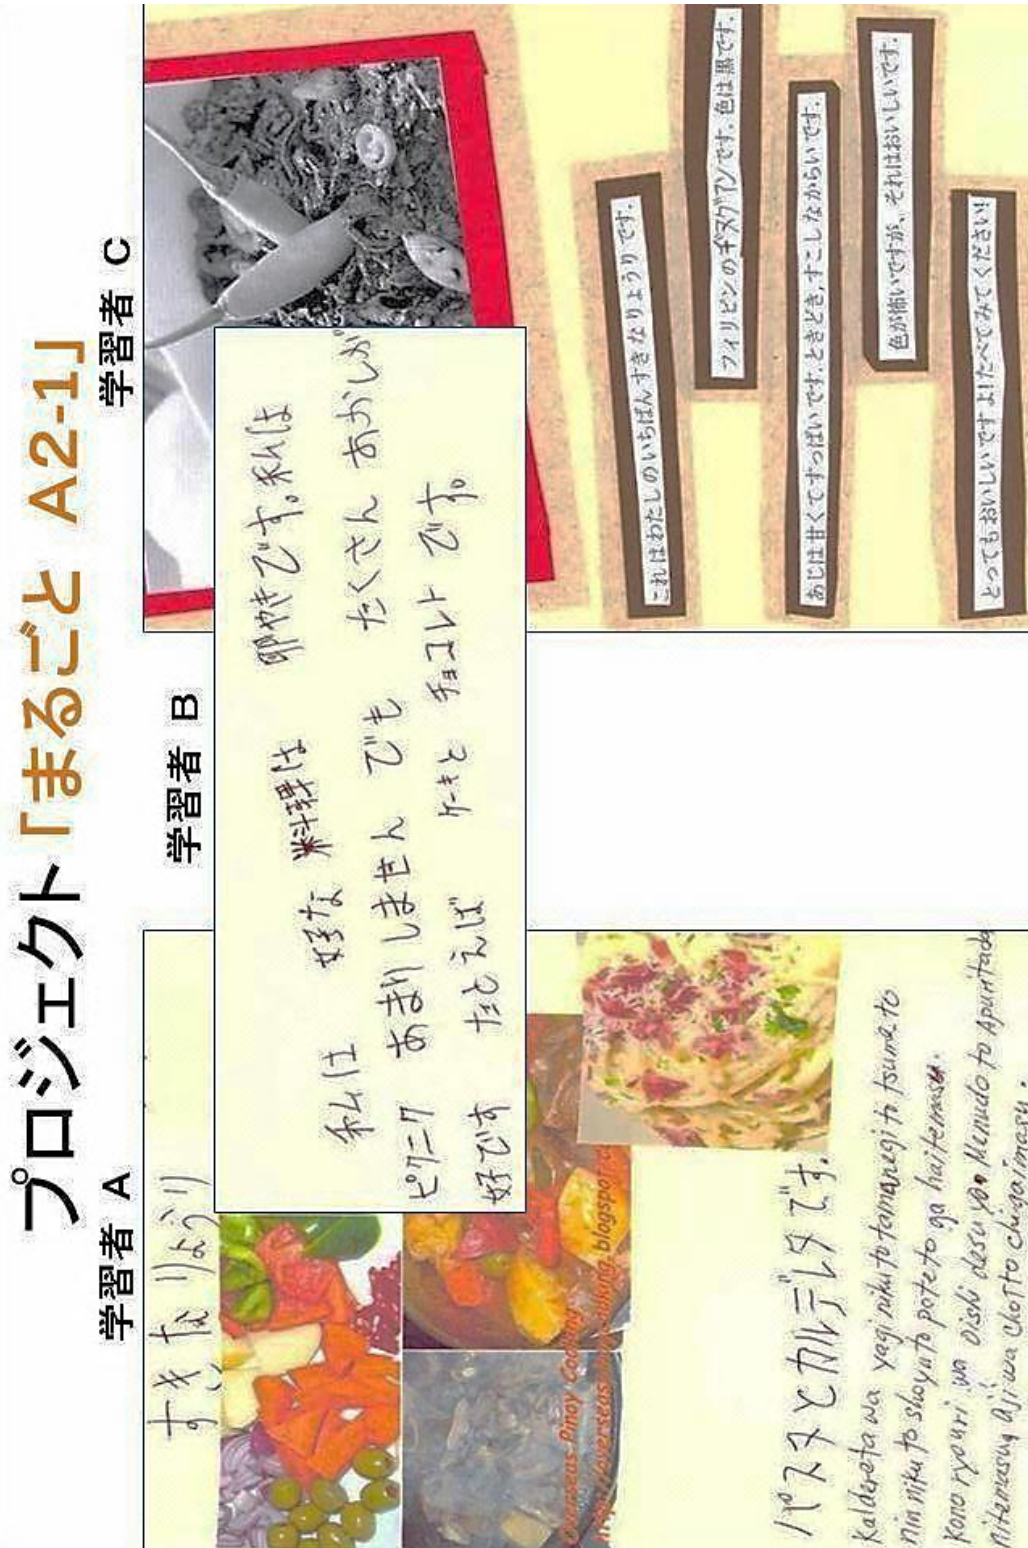 プロジェクト「まるごと A2-1」
学習者 A
すきな りょうり
Overseas Pinoy Cooking
パスタとカルデレタです。
Kaldereta wa yaginiku to tamanegi to tsuma to
ninniku to shoyu to poteto ga haitemasu.
Kono ryouri wa oishi desu yo. Menudo to Apuritada
nitemasu, Aji wa chotto chigaimasu.
学習者 B
私は 好きな 料理は 卵やきです。私は
ピクニク あまりしません でも たくさん おかしが
好です たとえば ケーキと チョコレト です。
学習者 C
これはわたしのいちばんすきなりょうりです。
フィリピンのギヌグアンです。色は黒です。
あじは甘くてすっぱいです。ときどき、すこしながらいです。
色が怖いですが、それはおいしいです。
とってもおいしいですよ!たべてみてください!